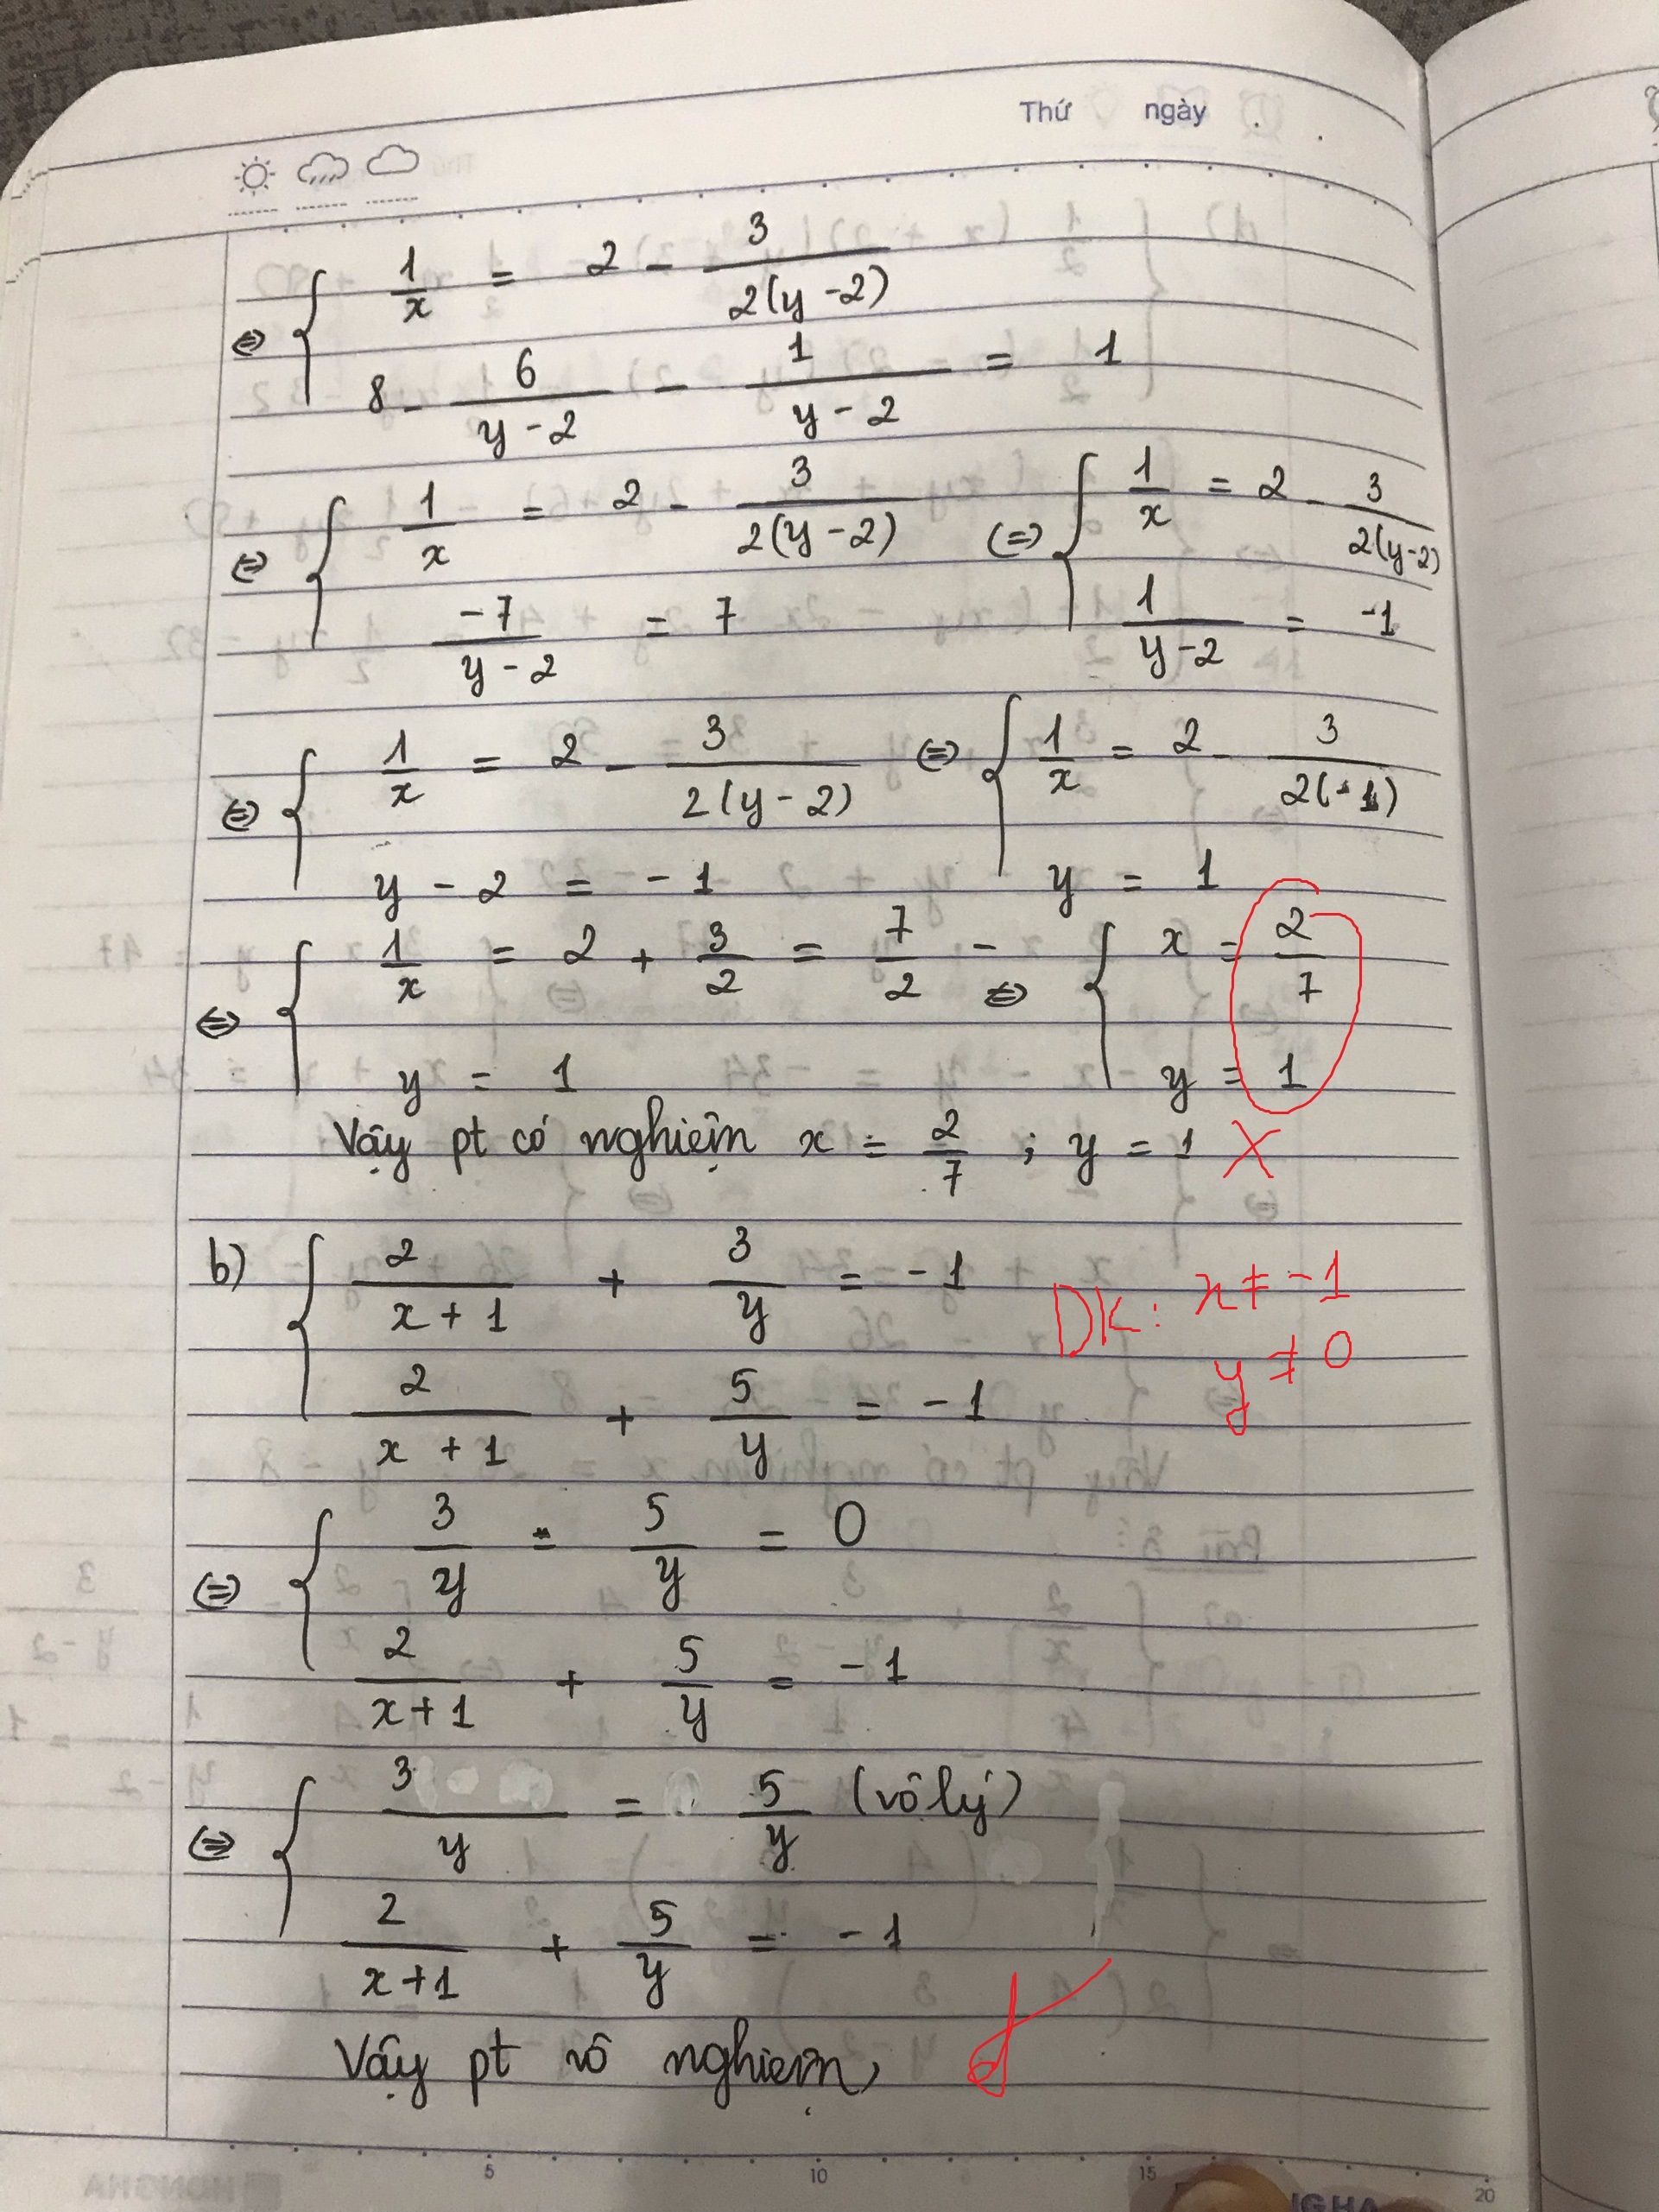 Thứ ngày
⇔ { 1/x = 2 - 3/(2(y-2))
8 - 6/(y-2) - 1/(y-2) = 1
⇔ { 1/x = 2 - 3/(2(y-2)) ⇔ { 1/x = 2 - 3/(2(y-2))
-7/(y-2) = 7 1/(y-2) = -1
⇔ { 1/x = 2 - 3/(2(y-2)) ⇔ { 1/x = 2 - 3/(2(-1))
y - 2 = -1 y = 1
⇔ { 1/x = 2 + 3/2 = 7/2 - ⇔ { x = 2/7
y = 1 y = 1
Vậy pt có nghiệm x = 2/7 ; y = 1 X
b) { 2/(x+1) + 3/y = -1 DK: x ≠ -1
y ≠ 0
2/(x+1) + 5/y = -1
⇔ { 3/y - 5/y = 0
2/(x+1) + 5/y = -1
⇔ { 3/y = 5/y (vô lý)
2/(x+1) + 5/y = -1
Vậy pt vô nghiệm,
5 10 15 20